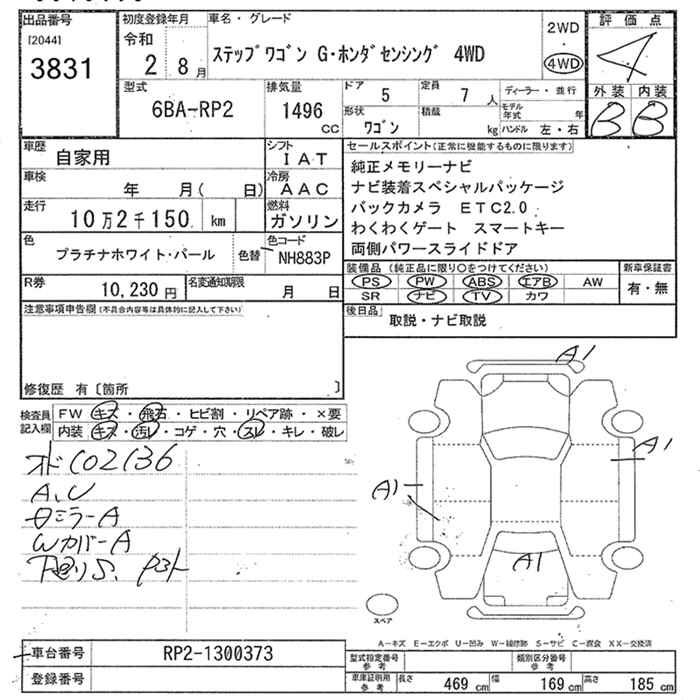 出品番号
[2044]
3831
初度登録年月
令和
2 8月
車名・グレード
ステップワゴン G・ホンダセンシング 4WD
2WD
・
4WD
評価点
4
外装 内装
B B
型式
6BA-RP2
排気量
1496
CC
ドア 5
定員 7 人
形状
ワゴン
積載
kg
ディーラー・並行
モデル年式 年
ハンドル 左・右
車歴
自家用
シフト
IAT
車検
年 月( 日)
冷房
AAC
走行
10万2千150 km
燃料
ガソリン
色
プラチナホワイト・パール
色替
色コード
NH883P
R券
10,230 円
名変通知期限
月 日
セールスポイント(正常に機能するものに限ります)
純正メモリーナビ
ナビ装着スペシャルパッケージ
バックカメラ ETC2.0
わくわくゲート スマートキー
両側パワースライドドア
装備品 (純正品に限り○をつけてください)
PS PW ABS エアB AW
SR ナビ TV カワ
新車保証書
有・無
後日品
取説・ナビ取説
注意事項申告欄(不具合内容等は具体的に記入して下さい)
修復歴 有〔箇所 〕
検査員記入欄
FW キズ・飛石・ヒビ割・リペア跡・×要
内装 キズ・汚レ・コゲ・穴・スレ・キレ・破レ
オド102136
A、U
日ミラーA
WカバーA
A1
A1
A1
A1
スペア
A-キズ E-エクボ U-凹み W-補修跡 S-サビ C-腐食 XX-交換済
車台番号
RP2-1300373
登録番号
型式指定番号
参考
類別区分番号
参考
車庫証明用
参考
長さ 469 cm
幅 169 cm
高さ 185 cm